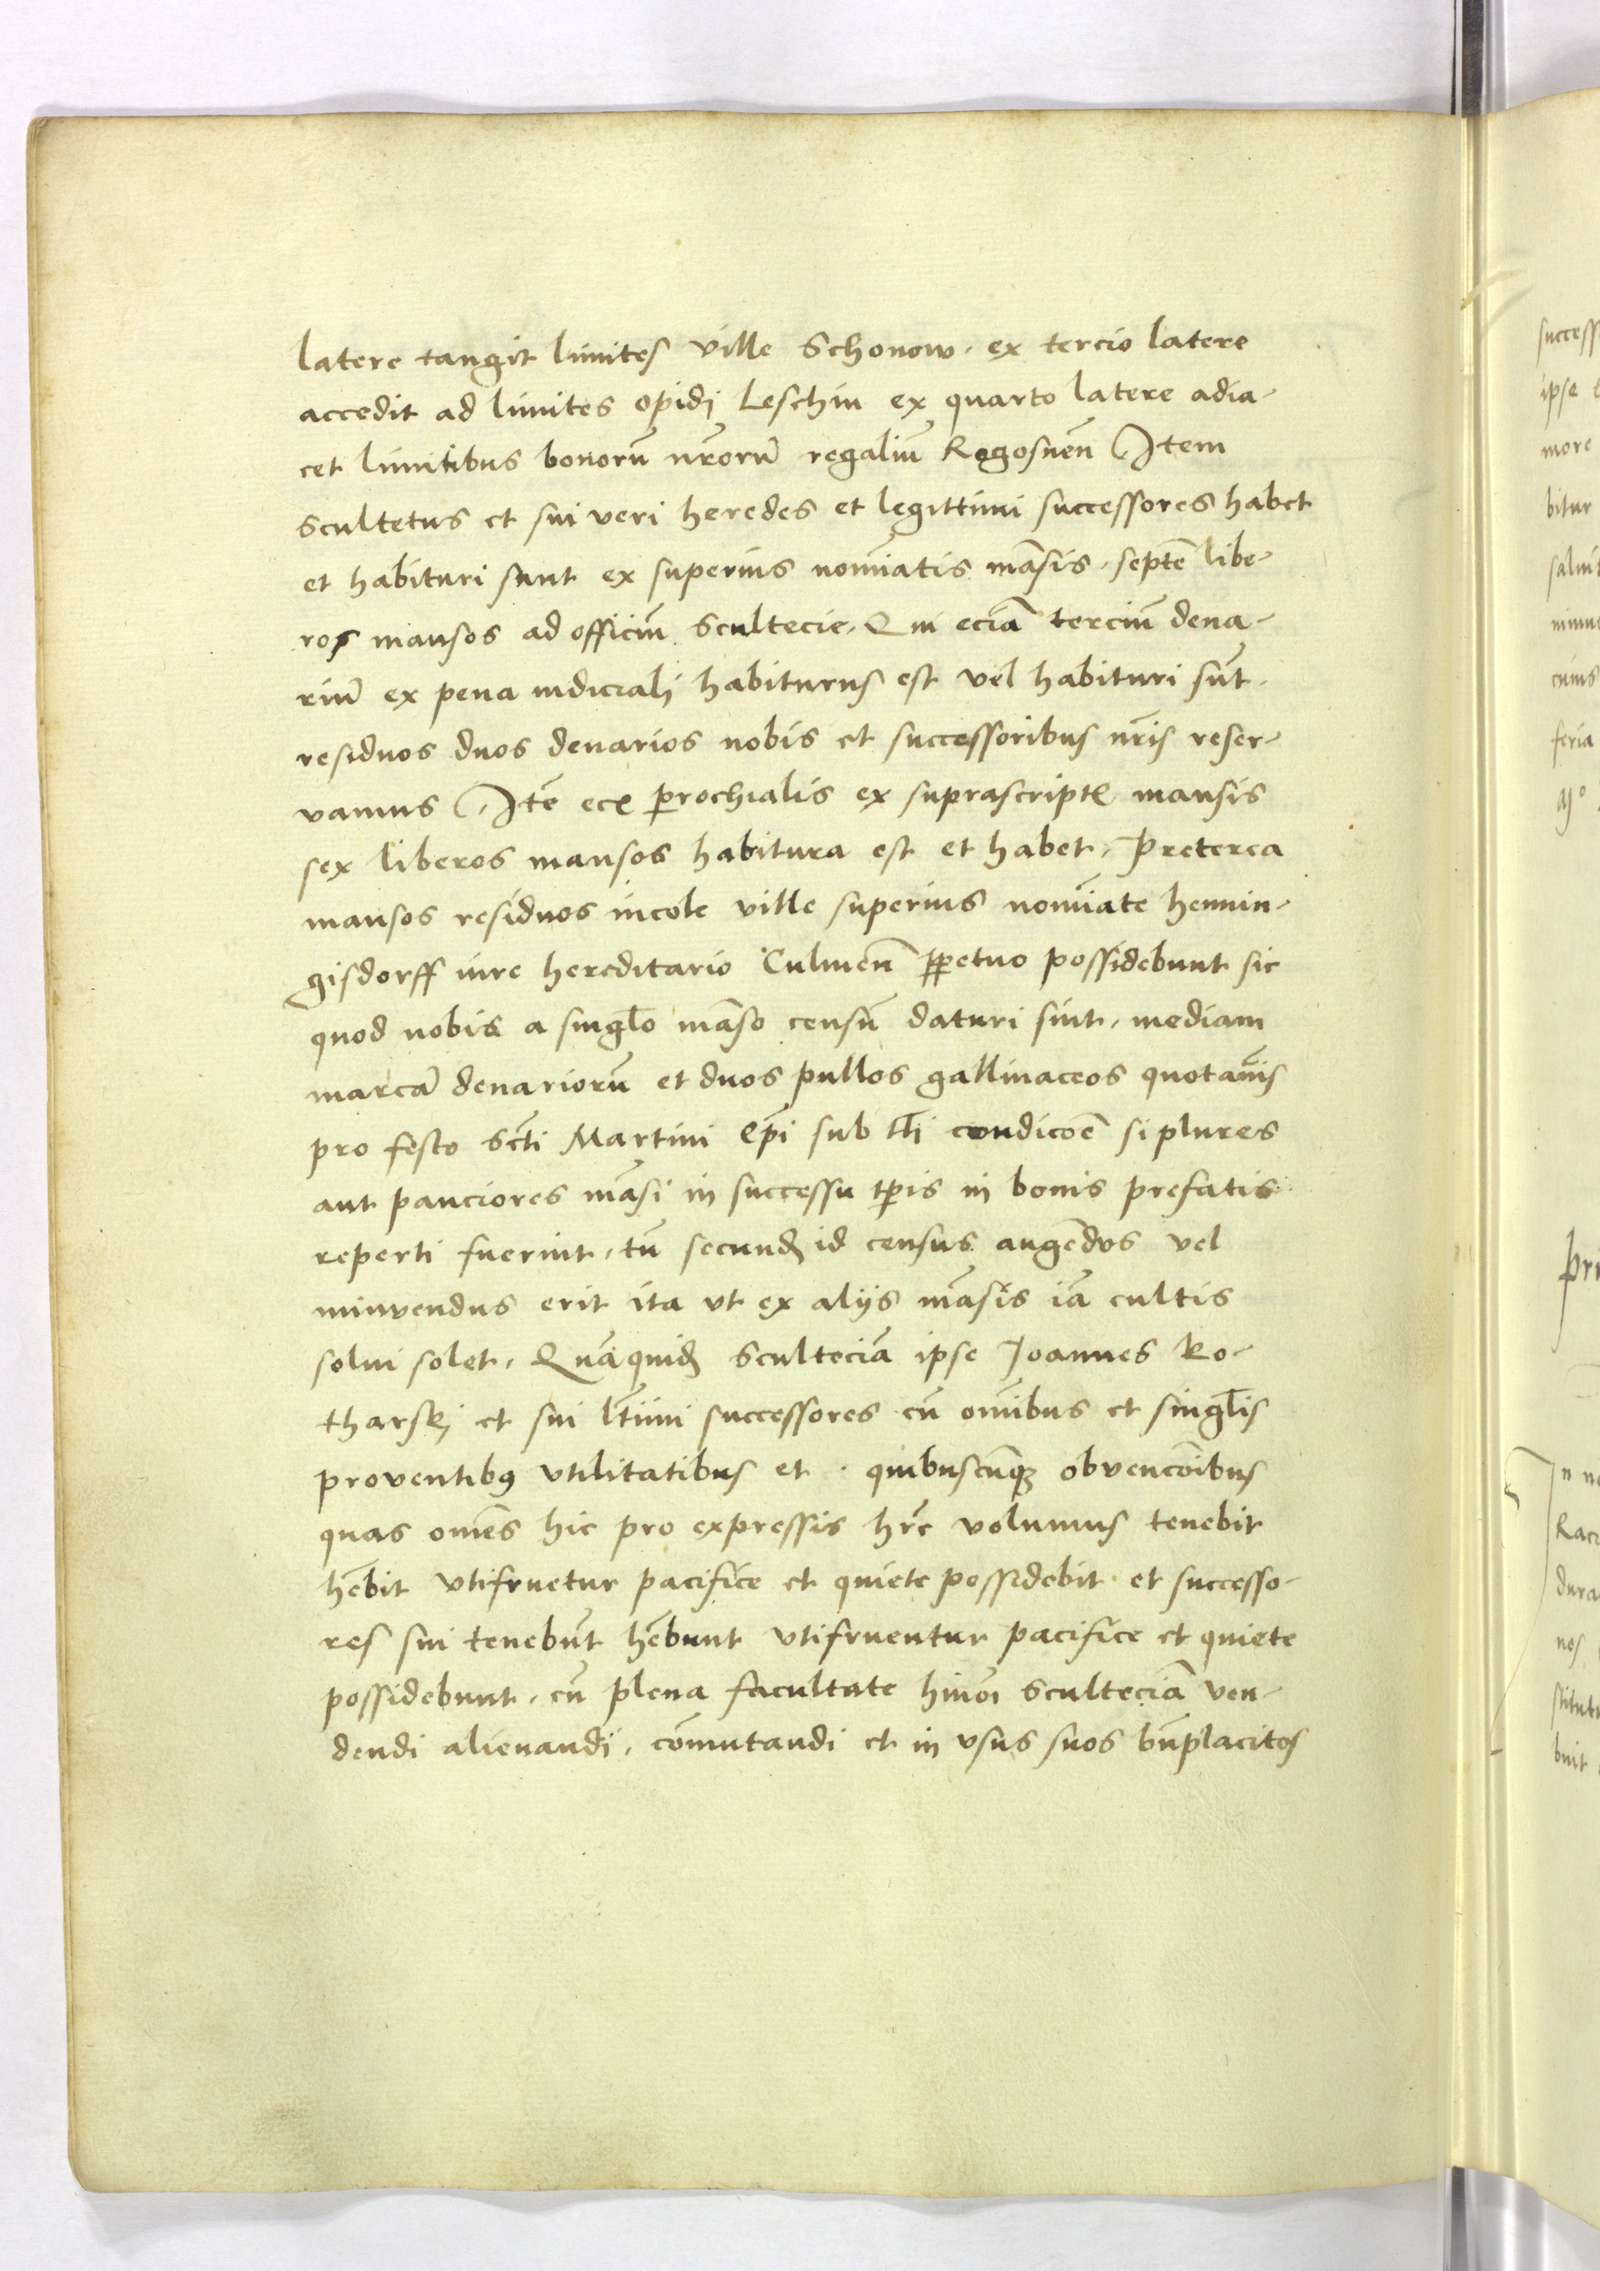 latere tangit limites ville Schonow. ex tercio latere
accedit ad limites opidi Leschin ex quarto latere adia-
cet limitibus bonorū nrōrū regaliū Rogosnēn Item
scultetus et sui veri heredes et legittimi successores habet
et habituri sunt ex superius nomīatis māsis. septē libe-
ros mansos ad officiū scultecie. Qui eciā terciū dena-
riū ex pena iudiciali habiturus est vel habituri sūt.
residuos duos denarios nobis et successoribus nr̄is reser-
vamus Itē eccꝭ ꝑrochialis ex suprascriptꝭ mansis
sex liberos mansos habitura est et habet. Preterea
mansos residuos incole ville superius nomīate hennin-
gisdorff iure hereditario Culmēn ꝑpetuo possidebunt sic
quod nobis a singl̄o māso censū daturi sint. mediam
marcā denariorū et duos pullos gallinaceos quotānis
pro festo Scti Martini Epī sub tl̄i condicōe si plures
aut pauciores māsi in successu tp̄is in bonis prefatis
reperti fuerint. tū secundꝫ id census augēdos vel
minuendus erit ita vt ex alijs māsis iā cultis
solui solet. Quāquidꝫ sculteciā ipse Joannes Ko-
tharskj et sui ltīmi successores cū om̄ibus et singl̄is
proventibꝰ vtilitatibus et. quibuscūqꝫ obvencōibus
quas om̄es hic pro expressis hr̄e volumus tenebit
hēbit vtifruetur pacifice et quiete possidebit. et successo-
res sui tenebūt hēbunt vtifruentur pacifice et quiete
possidebunt. cū plena facultate hmōi sculteciā ven-
dendi alienandi. cōmutandi et in vsus suos bn̄placitos